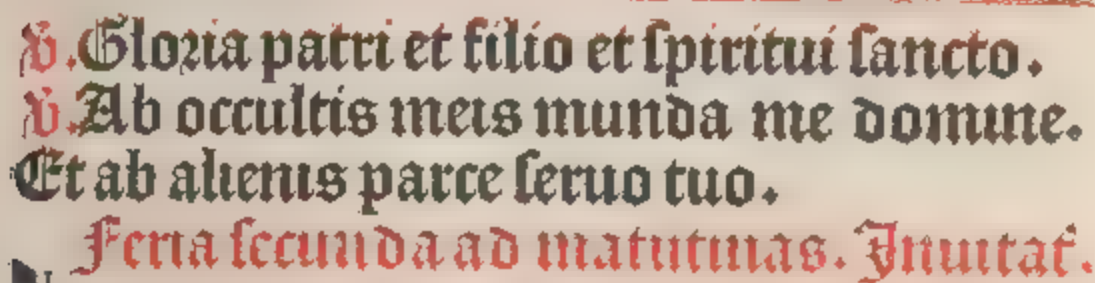 ℣. Gloria patri et filio et ſpiritui ſancto.
℣. Ab occultis meis munda me domine.
Et ab alienis parce ſeruo tuo.
Feria ſecunda ad matutinas. Inuitat̄.